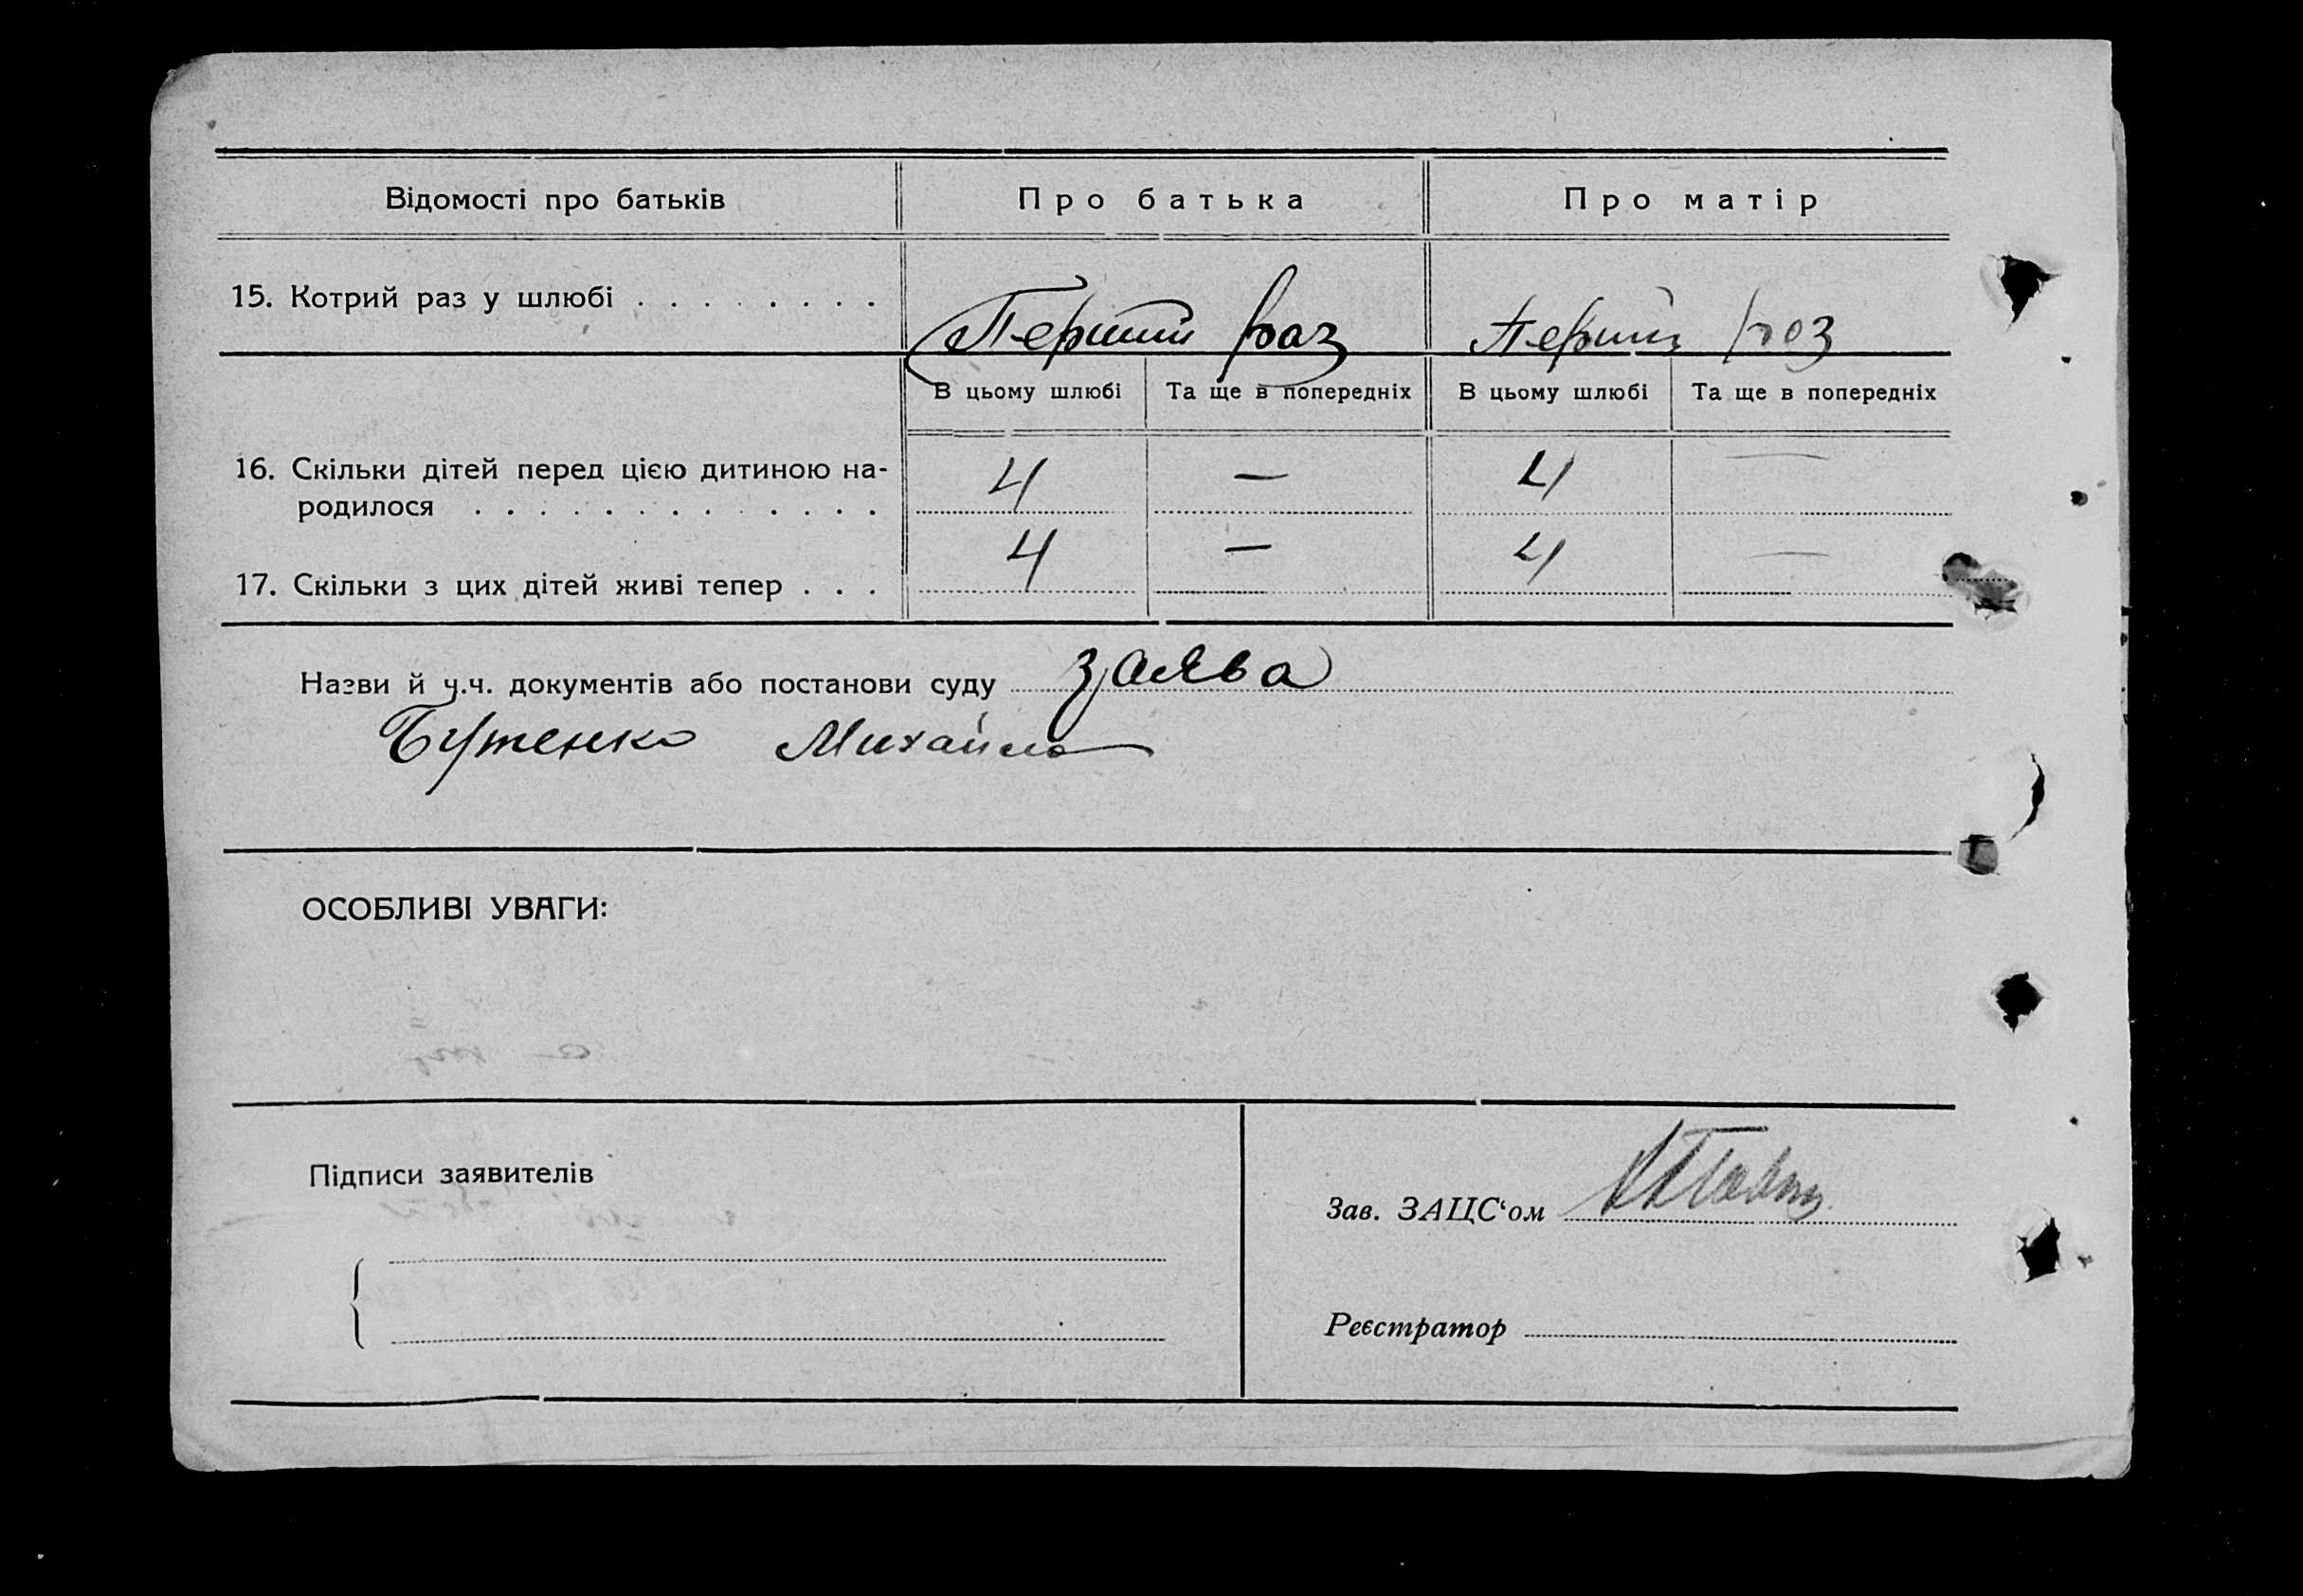 Відомості про батьків Про батька Про матір
15. Котрий раз у шлюбі . . . . . . . . Перший раз Перший раз
В цьому шлюбі Та ще в попередніх В цьому шлюбі Та ще в попередніх
16. Скільки дітей перед цією дитиною на-
родилося . . . . . . . . . . . . . 4 — 4 —
17. Скільки з цих дітей живі тепер . . . 4 — 4 —
Назви й ч.ч. документів або постанови суду заява
Бутенко Михайло
ОСОБЛИВІ УВАГИ:
Підписи заявителів
Зав. ЗАЦС‘ом
Реєстратор